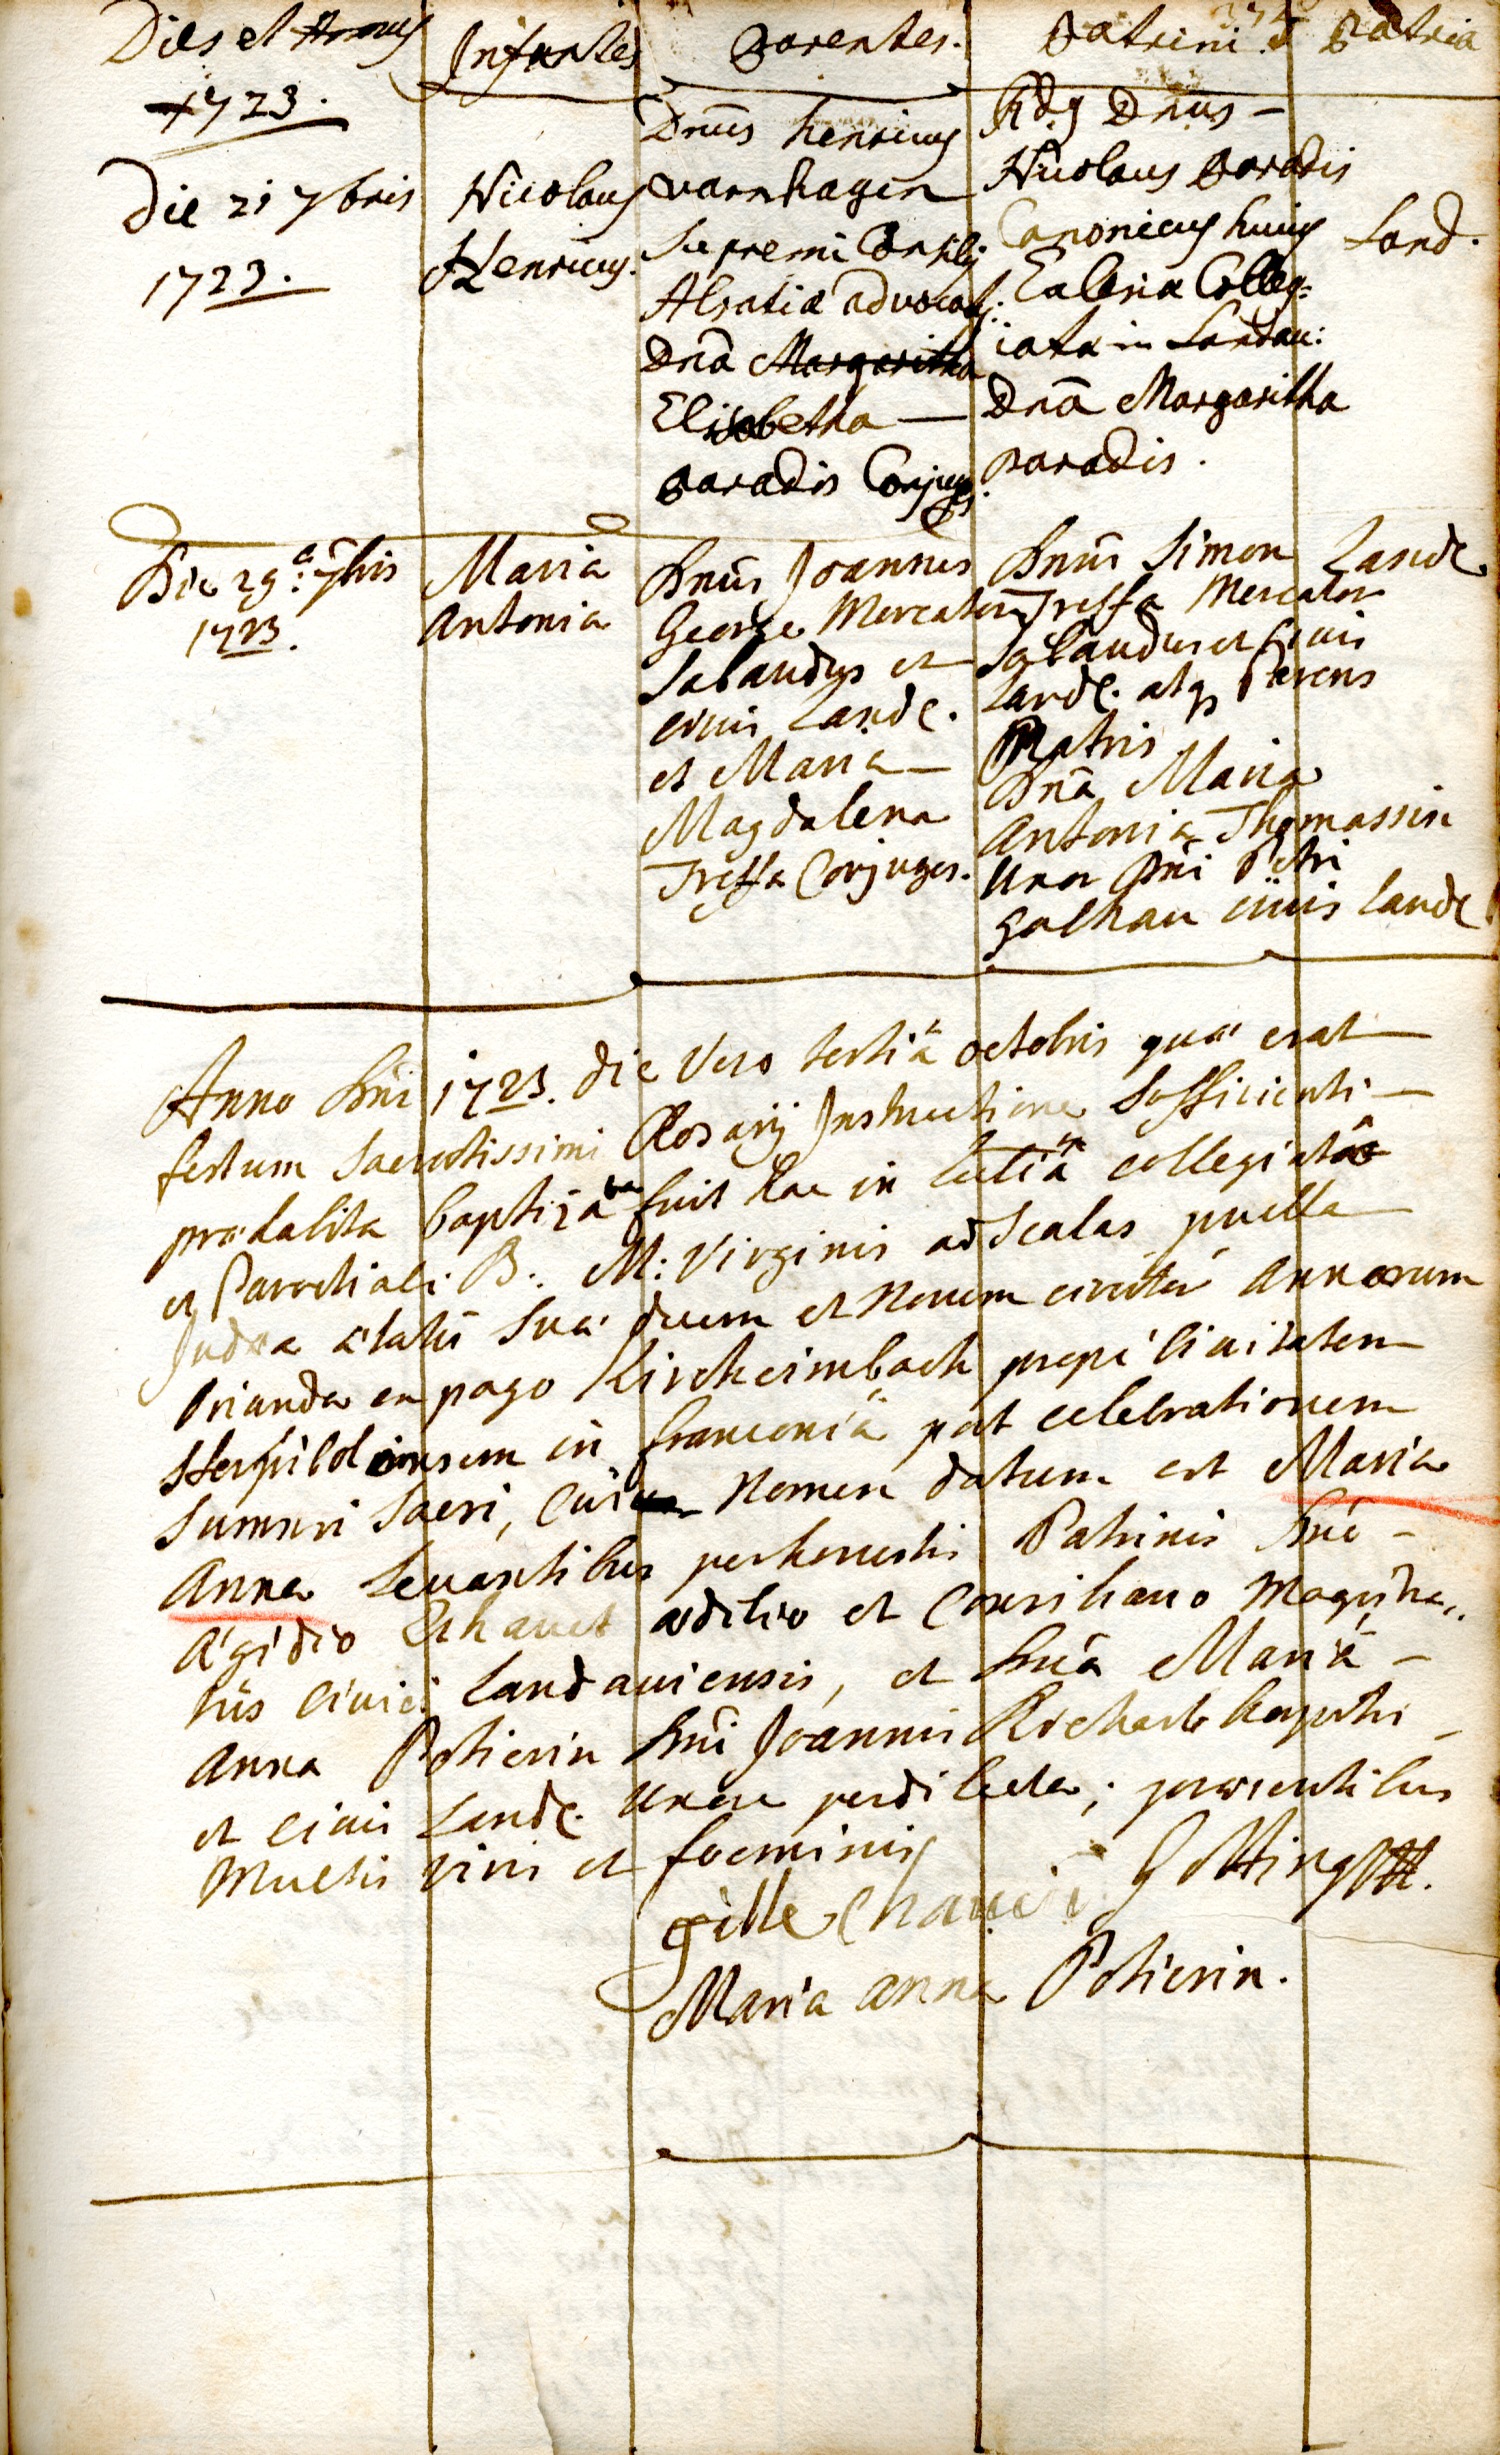 Dies et Annus
Infantes
Parentes.
Patrini.
Patria
1723.
Die 21 7bris
1723.
Nicolaus
Henricus.
Dnus henricus
varnhagen
Supremi Consilij
Alsatiæ advocatus:
Dna Margaritha
Elisabetha —
paradis Conjuges.
Rdus Dnus —
Nicolaus paradis
Canonicus huius
Ecclesiæ Colleg=
iatæ in Landau:
Dna Margaritha
paradis.
Land.
Die 29a: 7bris
1723.
Maria
Antonia
Dnus Joannes
George Mercator
Sabaudus et
civis Lande.
et Maria —
Magdalena
Treffa Conjuges.
Dnus Simon
Treffa Mercator
Sabaudus et Civis
Lande. atqs Parens
Matris
Dna Maria
Antonia Thomassin
Uxor Dni Petri
Galhau civis Lande
Lande
Anno Dni 1723. die Vero tertiâ octobris quæ erat —
festum Sacratissimi Rosarij Instructione Sufficienti —
prædabita baptizata fuit hac in Ecclesiâ collegiatâ
et Parochiali B. M: Virginis ad Scalas puella —
Judæa ætatis suæ decem et Novem circiter Annorum
Orianda ex pago Kircheimbach prope Civitatem
in franconiâ post celebrationem
Summi Sacri, Cui Nomen datum est Maria
Anna Levantibus perhonestis Patrinis Dno —
Ægidio Chauet ædilio et Consiliario Magistra=
tûs Civici Landaviensis, et Dna Mariâ —
Anna Potierin Dni Joannis Richart
et Civis Lande. Uxore perdilecta; præsentibus
Multis viris et foeminis
Gotting
gille Chauet
Maria anna Potierin.